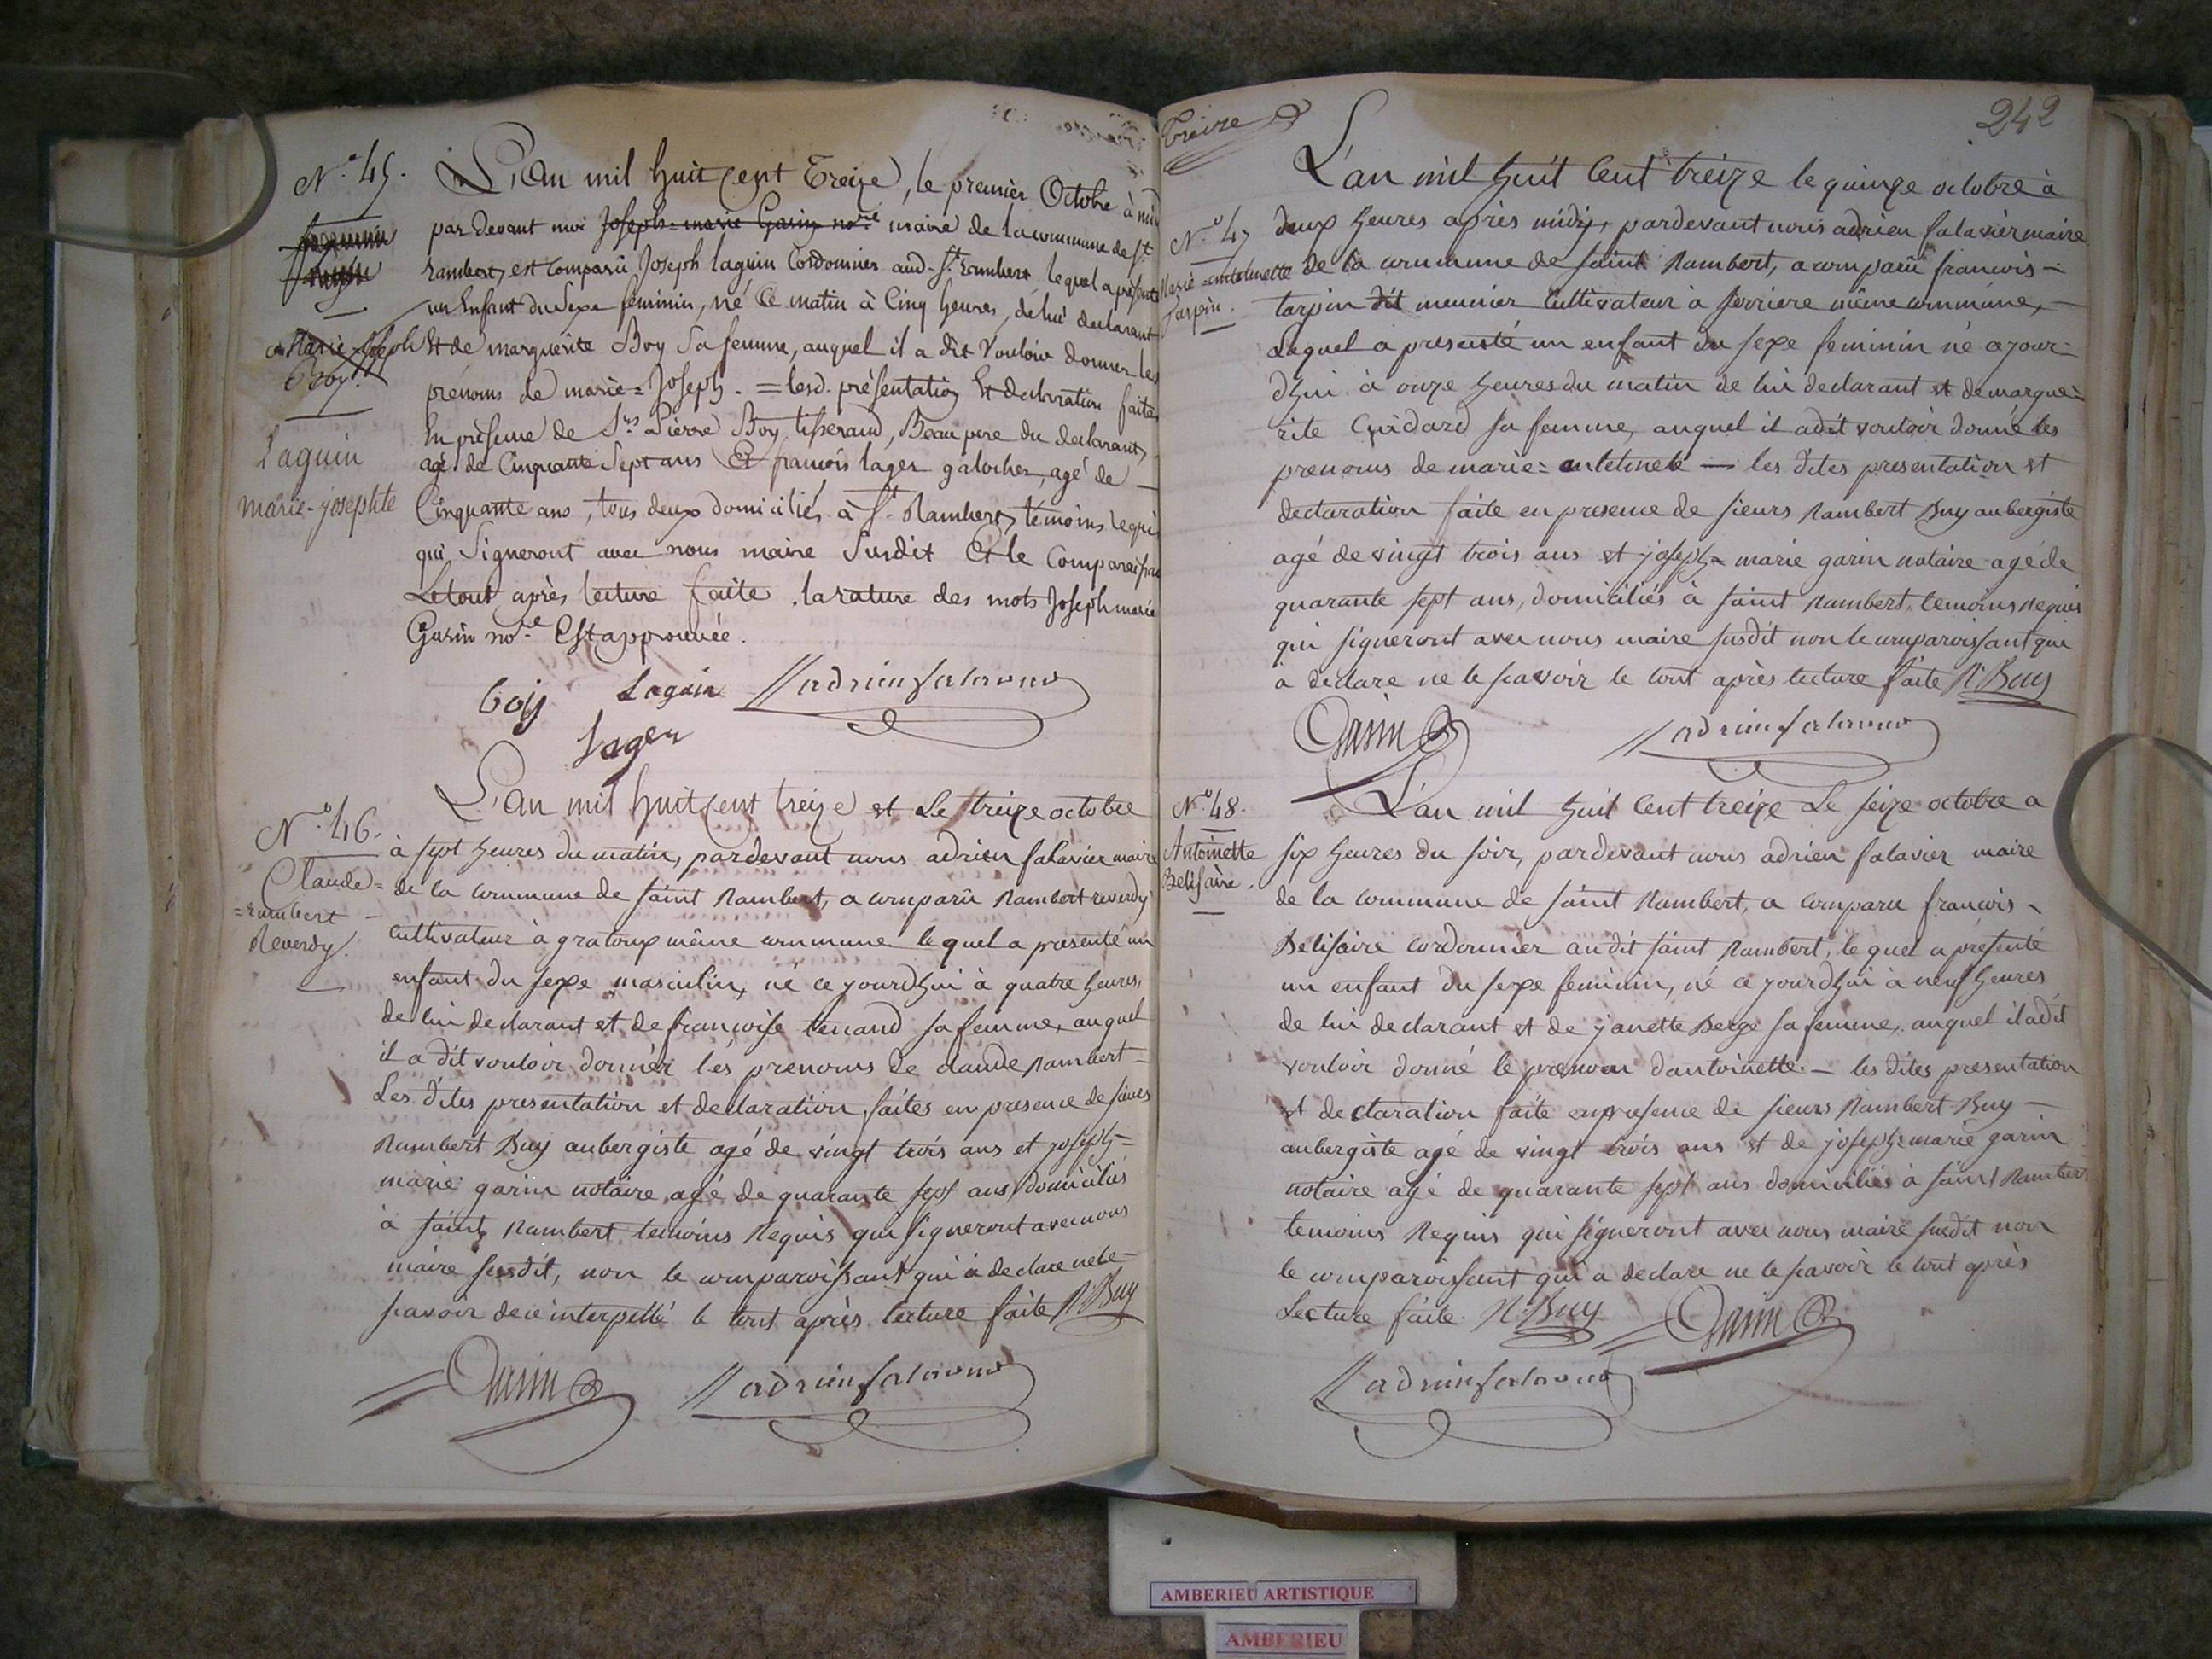 N.o 45.
Marie-Joseph
Boy.
Laguin
marie-josephte
L'an mil huit cent Treize, le premier Octobre à midi
par devant moi Joseph-marie Garin no.re maire de la commune de S.t
rambert, est comparû Joseph laguin Cordonnier aud. S.t rambert, lequel a présenté
un Enfant du Sexe féminin, né Ce matin à Cinq heures, de lui déclarant
Et de marguerite Boy Sa femme, auquel il a dit Vouloir donner les
prénoms de marie=Joseph. = lesd. présentation Et déclaration faites
En présence de S.rs Pierre Boy, tisserand, Beau pere du declarant,
agé de Cinquante Sept ans Et francois lager galocher, agé de
Cinquante ans, tous deux domiciliés à S.t Rambert, témoins requis
qui Signeront avec nous maire Susdit Et le Comparaissant
Le tout après lecture faite. la rature des mots Joseph marie
Garin no.re Est approuvée.
boiy Laguin adrien salavier
Lager
N.o 46.
Claude=
=rambert
Reverdy.
L'an mil huit cent treize et Le treize octobre
à sept heures du matin, pardevant nous adrien salavier maire
de la commune de saint Rambert, a comparû Rambert reverdy
cultivateur à gratoux même commune lequel a presenté un
enfant du sexe masculin, né ce jourdhui à quatre heures,
de lui declarant et de francoise tenand sa femme, auquel
il a dit vouloir donnér lés prenoms de claude Rambert
Les dites presentation et declaration, faites en presence de sieurs
Rambert Buy aubergiste agé de vingt trois ans et joseph=
marie garin notaire, agé de quarante sept ans domiciliés
à saint Rambert temoins Requis qui signeront avec nous
maire susdit, non le comparoissant qui à declare ne le
savoir de ce interpellé le tout après lecture faite R. Buy
Garin adrien salavier
Treize
242
N.o 47
Marie-antoinette
Tarpin.
L'an mil huit Cent treize le quinze octobre à
deux heures après midi, pardevant nous adrien salavier maire
de la commune de saint Rambert, a comparû francois=
tarpin dit meunier cultivateur à serriere même commune,
Lequel a presenté un enfant du sexe feminin né ajour=
dhui à onze heures du matin de lui declarant et de margue=
rite Guidard sa femme, auquel il a dit vouloir donné les
prenoms de marie= antetinete — les dites presentation et
declaration faite en presence de sieurs Rambert Buy aubergiste
agé de vingt trois ans et joseph= marie garin notaire agé de
quarante sept ans, domiciliés à saint Rambert, temoins Requis
qui signeront avec nous maire susdit non le comparoissant que
a declare ne le savoir le tout après lecture faite R. Buy
Garin adrien salavier
N.o 48.
Antoinette
Belisaire.
L'an mil huit Cent treize Le seize octobre a
six heures du soir, pardevant nous adrien salavier maire
de la commune de saint Rambert, a comparu francois
Belisaire cordonnier au dit saint Rambert, le quel a presenté
un enfant du sexe feminin, né ce jourdhui à neuf heures
de lui declarant et de janette Berge sa femme, auquel il a dit
vouloir donné le prenom dantoinette. — les dites presentation
et declaration faite en presence de sieurs Rambert Buy
aubergiste agé de vingt trois ans et de joseph=marie garin
notaire agé de quarante sept ans domiciliés à saint Rambert
temoins Requis qui signeront avec nous maire susdit non
le comparoissant qui a declare ne le savoir le tout après
Lecture faite. R. Buy Garin
adrien salavier
AMBERIEU ARTISTIQUE
AMBERIEU